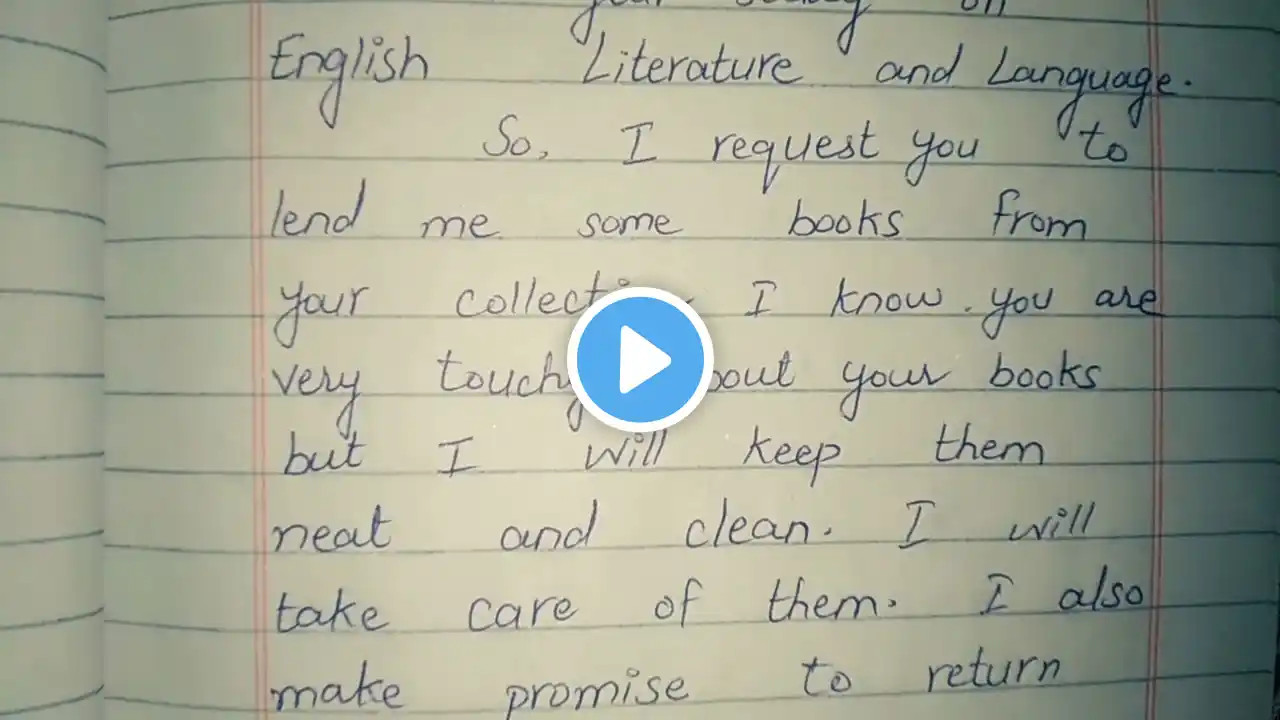 on
English Literature and Language.
So, I request you to
lend me some books from
your I know you are
very your books
but I will keep them
neat and clean. I will
take care of them. I also
make promise to return